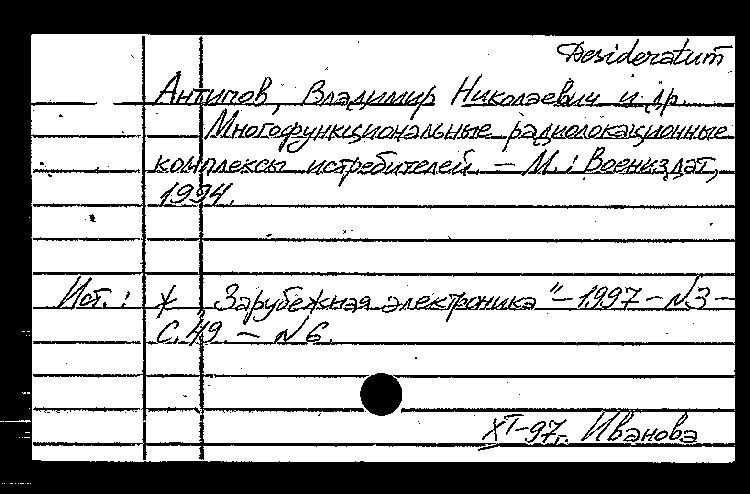 Desideratum
Антипов, Владимир Николаевич и др.
Многофункциональные радиолокационные
комплексы истребителей. – М.: Воениздат,
1994.
Ист.: ж „Зарубежная электроника“ – 1997 – №3 –
С. 49. – №6.
XI-97г. Иванова